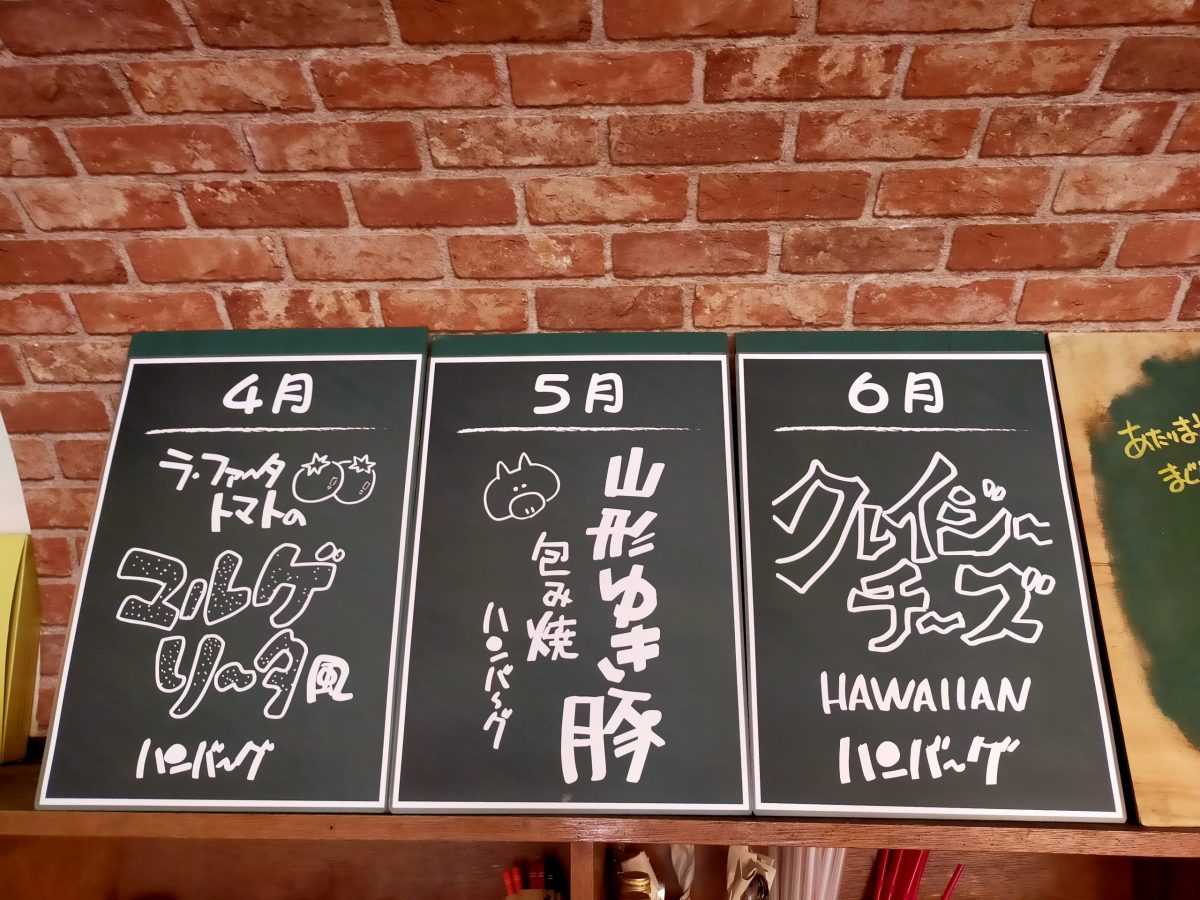 4月
ラ・ファータ
トマトの
マルゲ
リータ風
ハンバーグ
5月
山形ゆき豚
包み焼
ハンバーグ
6月
クレイジー
チーズ
HAWAIIAN
ハンバーグ